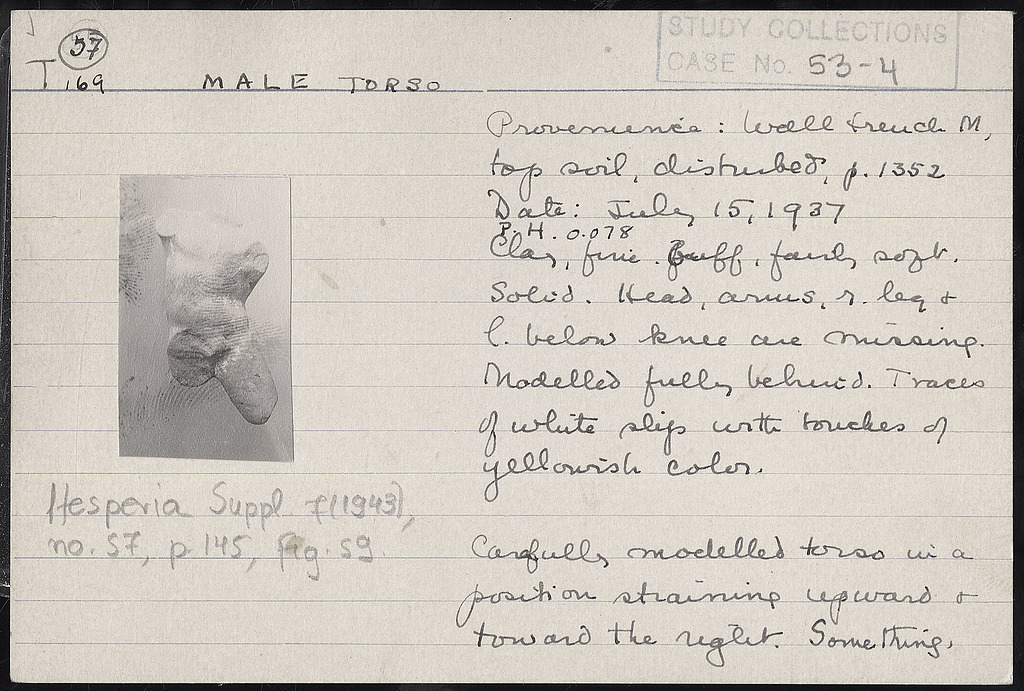 37
T 169 MALE TORSO
STUDY COLLECTIONS
CASE No. 53-4
Provenience: Wall trench M,
top soil, disturbed, p. 1352
Date: July 15, 1937
P.H. 0.078
Clay, fine. Buff, fairly soft.
Solid. Head, arms, r. leg +
l. below knee are missing.
Modelled fully behind. Traces
of white slip with touches of
yellowish color.
Carefully modelled torso in a
position straining upward +
toward the right. Something,
Hesperia Suppl. 7 (1943),
no. 57, p. 145, fig. 59.